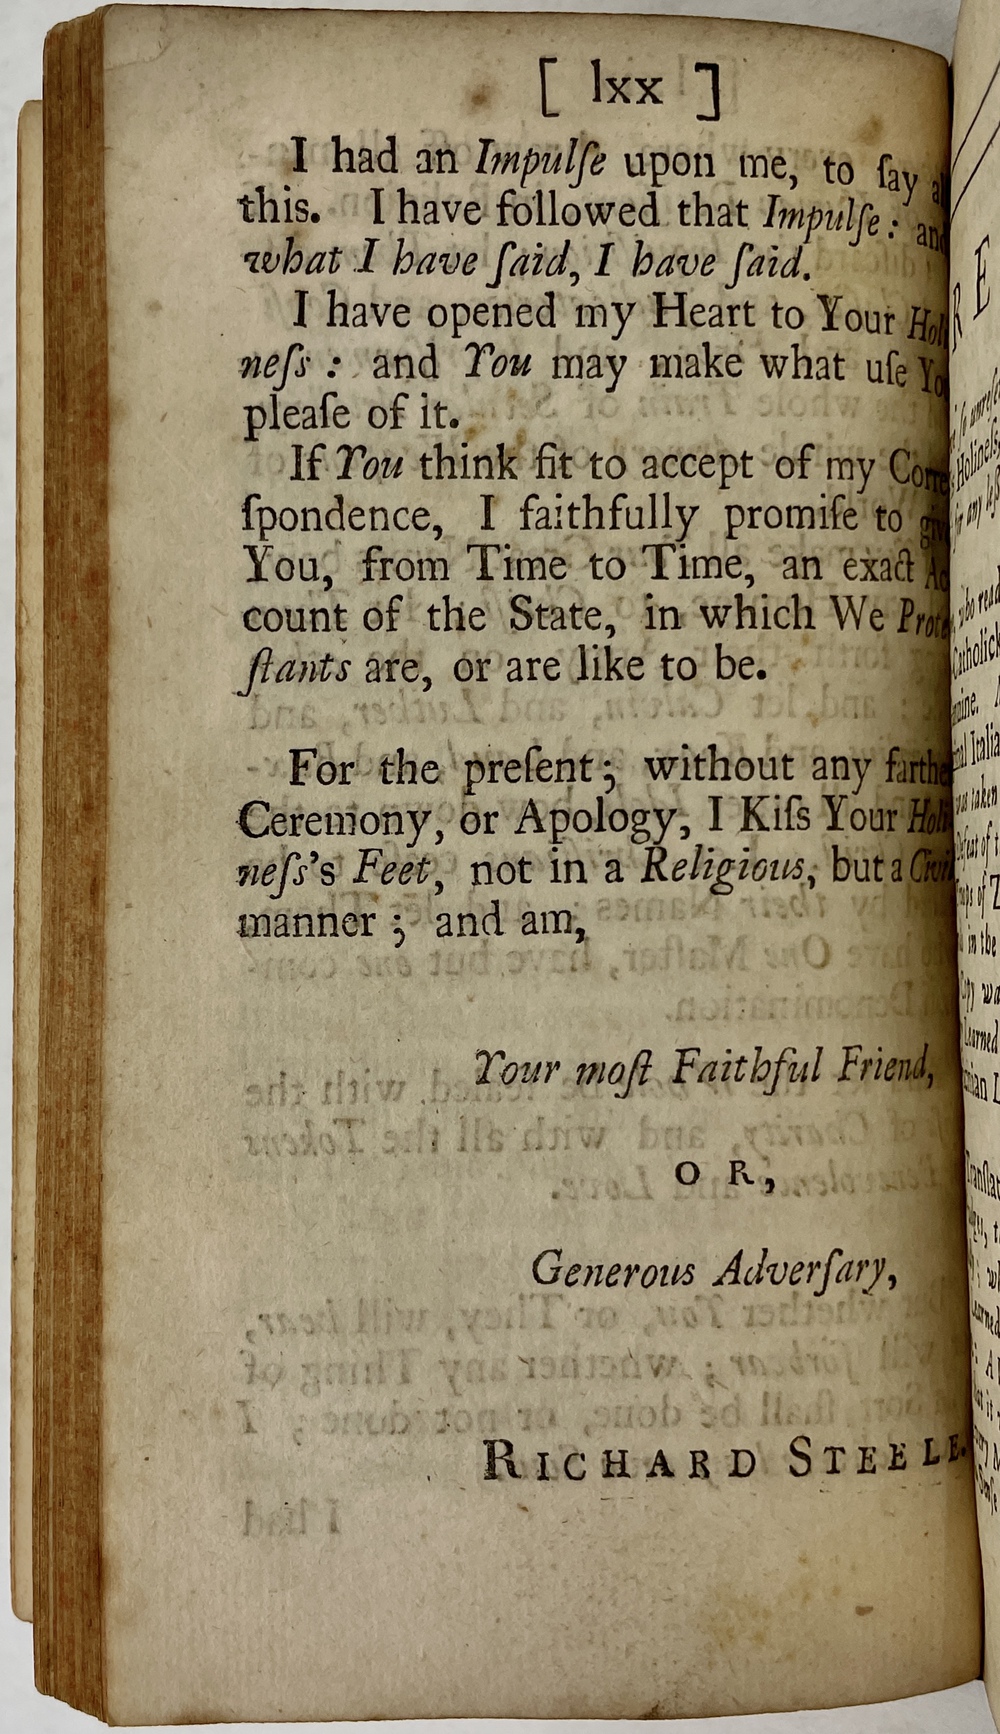 [ lxx ]
I had an Impulſe upon me, to ſay
this. I have followed that Impulſe: and
what I have ſaid, I have ſaid.
I have opened my Heart to Your Holi
neſs: and You may make what uſe You
pleaſe of it.
If You think fit to accept of my Corre
ſpondence, I faithfully promiſe to give
You, from Time to Time, an exact Ac
count of the State, in which We Prote
ſtants are, or are like to be.
For the preſent; without any farther
Ceremony, or Apology, I Kiſs Your Holi
neſs's Feet, not in a Religious, but a Civil
manner; and am,
Your moſt Faithful Friend,
OR,
Generous Adverſary,
RICHARD STEELE.